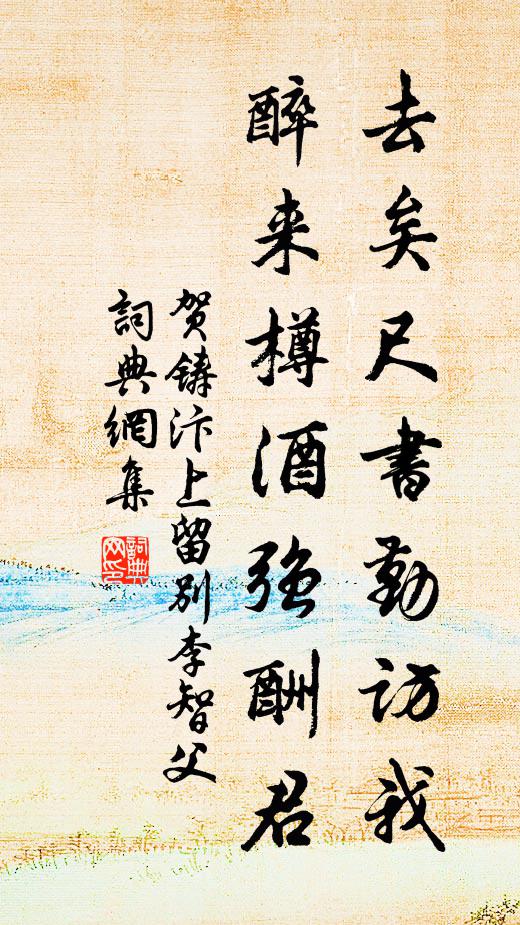 去矣尺书勤访我
醉来樽酒强酬君
贺铸汴上留别李智父
詞典網集
詞典网印